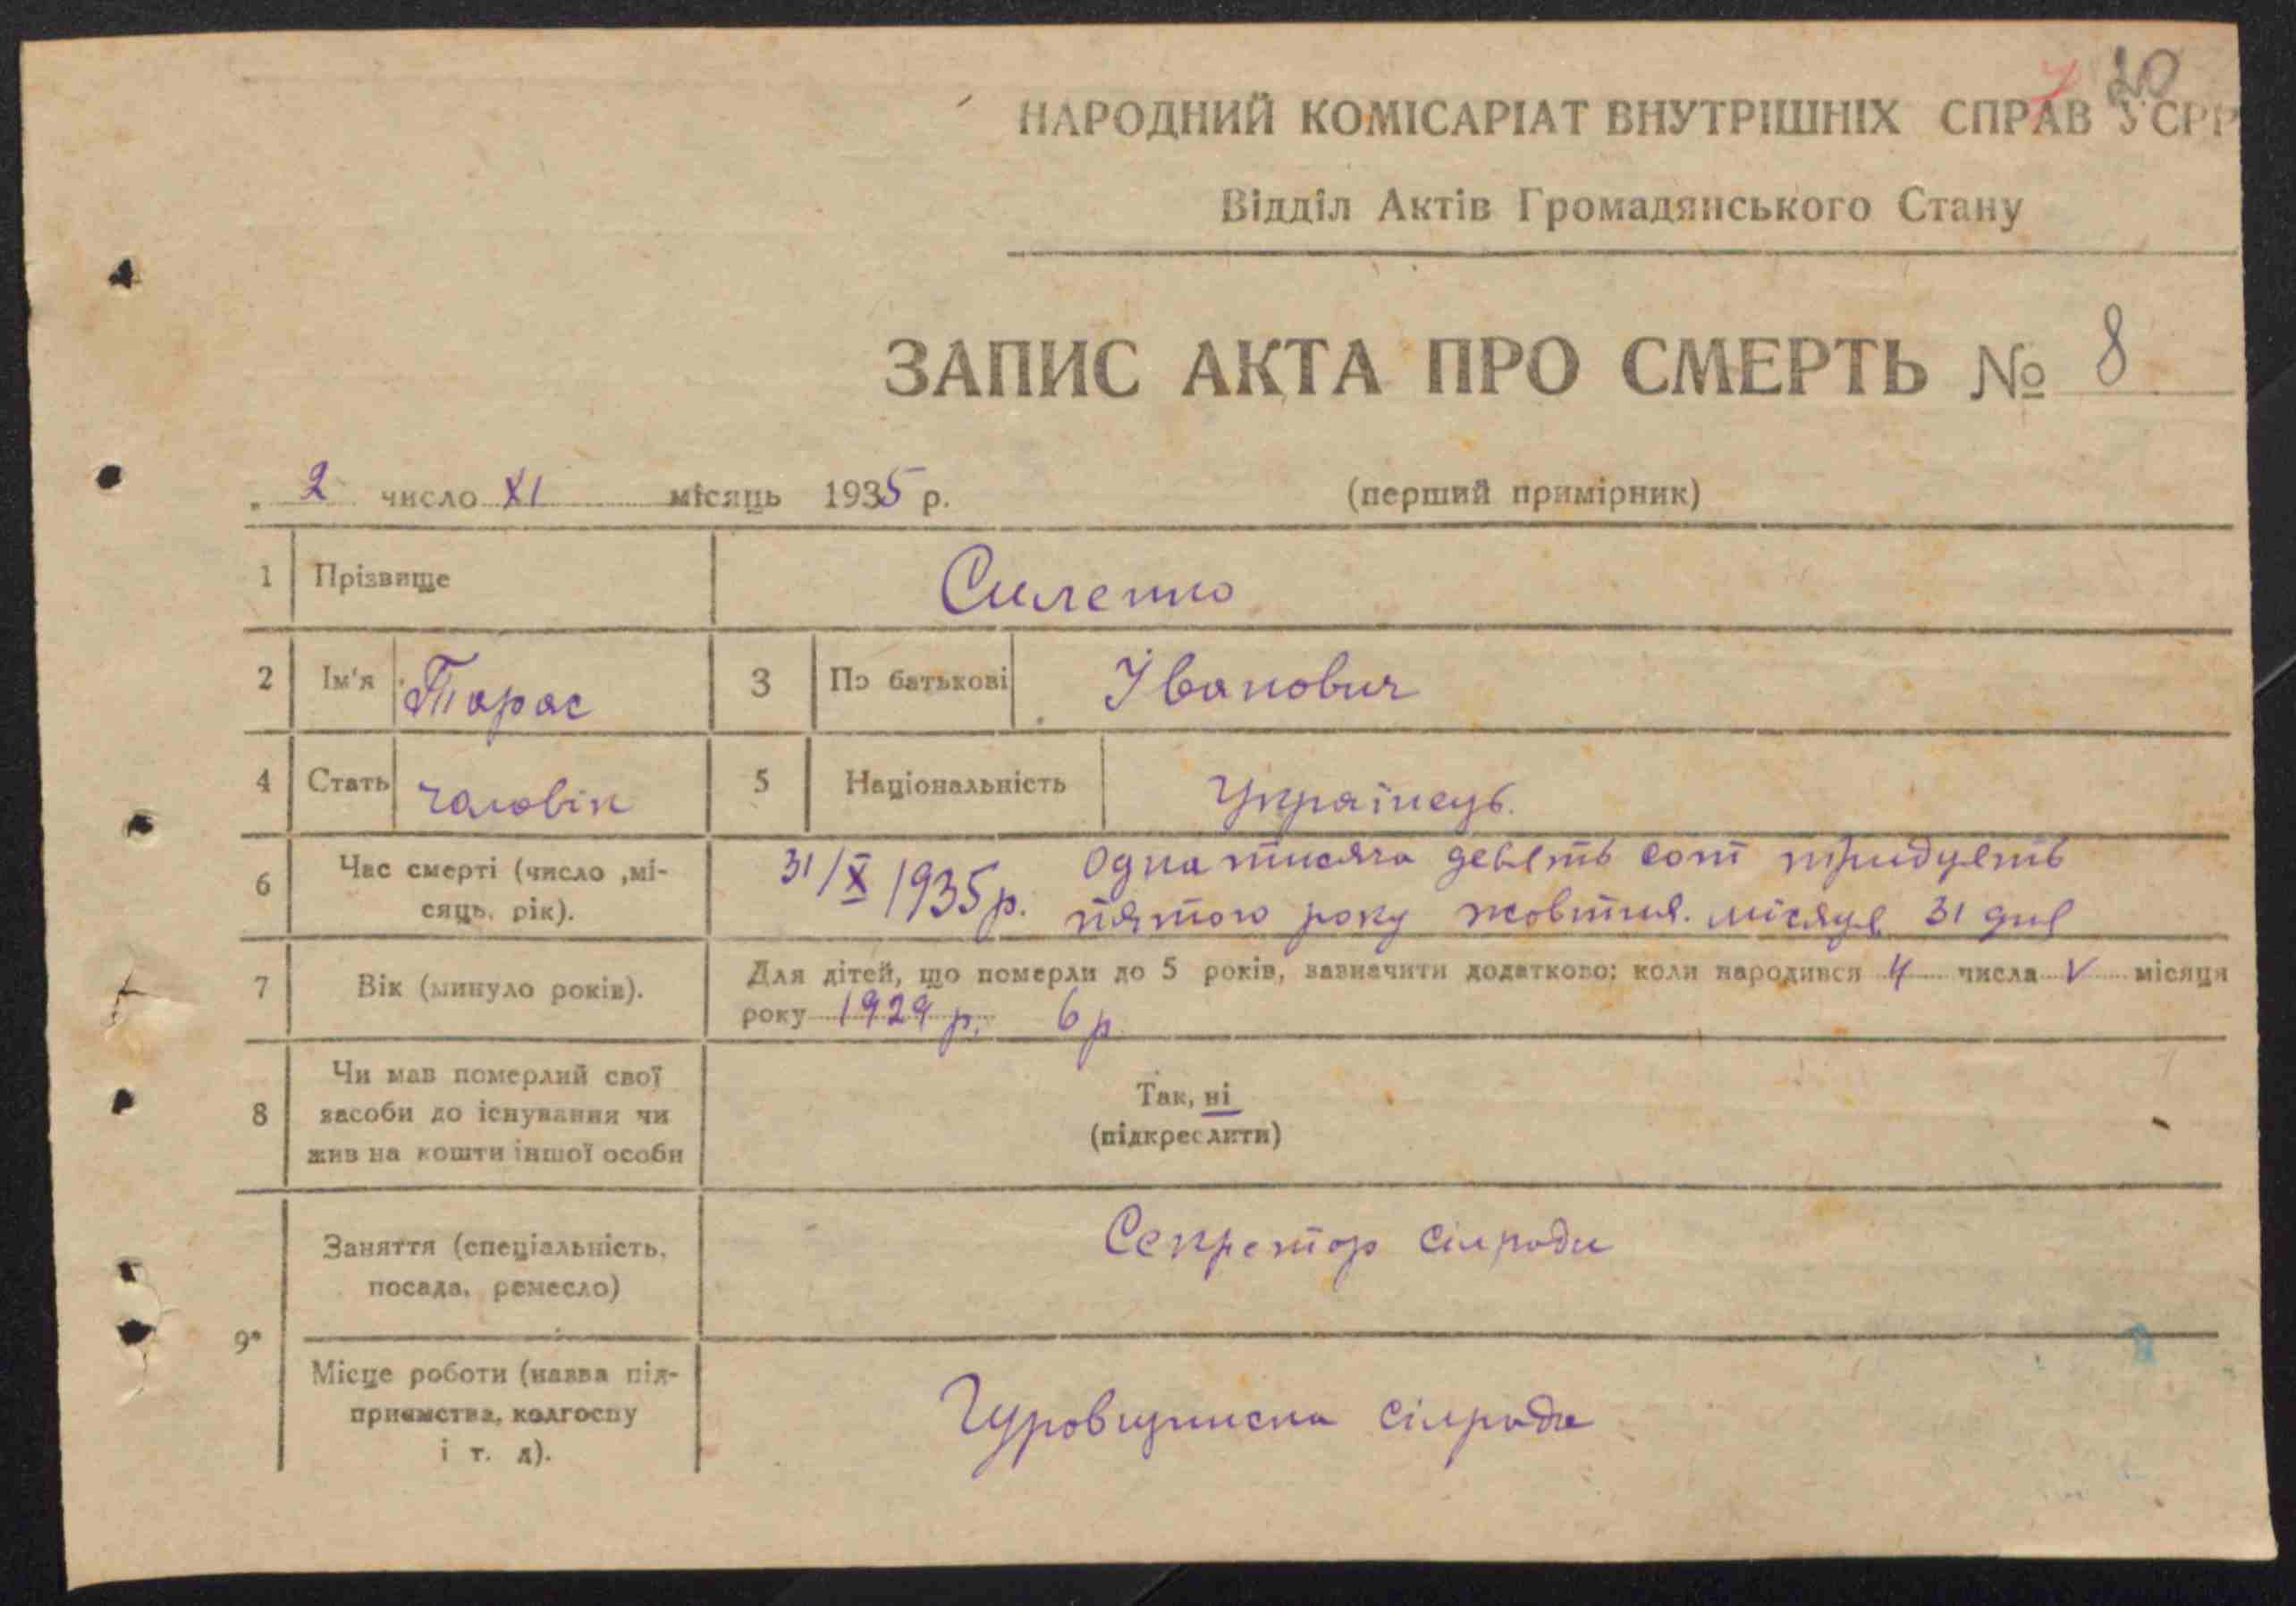 20
НАРОДНИЙ КОМІСАРІАТ ВНУТРІШНІХ СПРАВ УСРР
Відділ Актів Громадянського Стану
ЗАПИС АКТА ПРО СМЕРТЬ № 8
„ 2 число XI місяць 1935 р. (перший примірник)
1 Прізвище Силенко
2 Ім'я Тарас 3 По батькові Іванович
4 Стать чоловік 5 Національність Українець.
6 Час смерті (число ,мі-
сяць, рік).
31/X 1935 р. Одна тисяча девять сот тридцять
пятого року жовтня. місяця 31 дня
7 Вік (минуло років). Для дітей, що померли до 5 років, зазначити додатково; коли народився 4 числа V місяця
року 1929 р. 6 р
8 Чи мав померлий свої
засоби до існування чи
жив на кошти іншої особи
Так, ні
(підкреслити)
9* Заняття (спеціальність,
посада, ремесло)
Секретар сілради
Місце роботи (назва під-
приємства, колгоспу
і т. д).
Гуровщинска сілрада